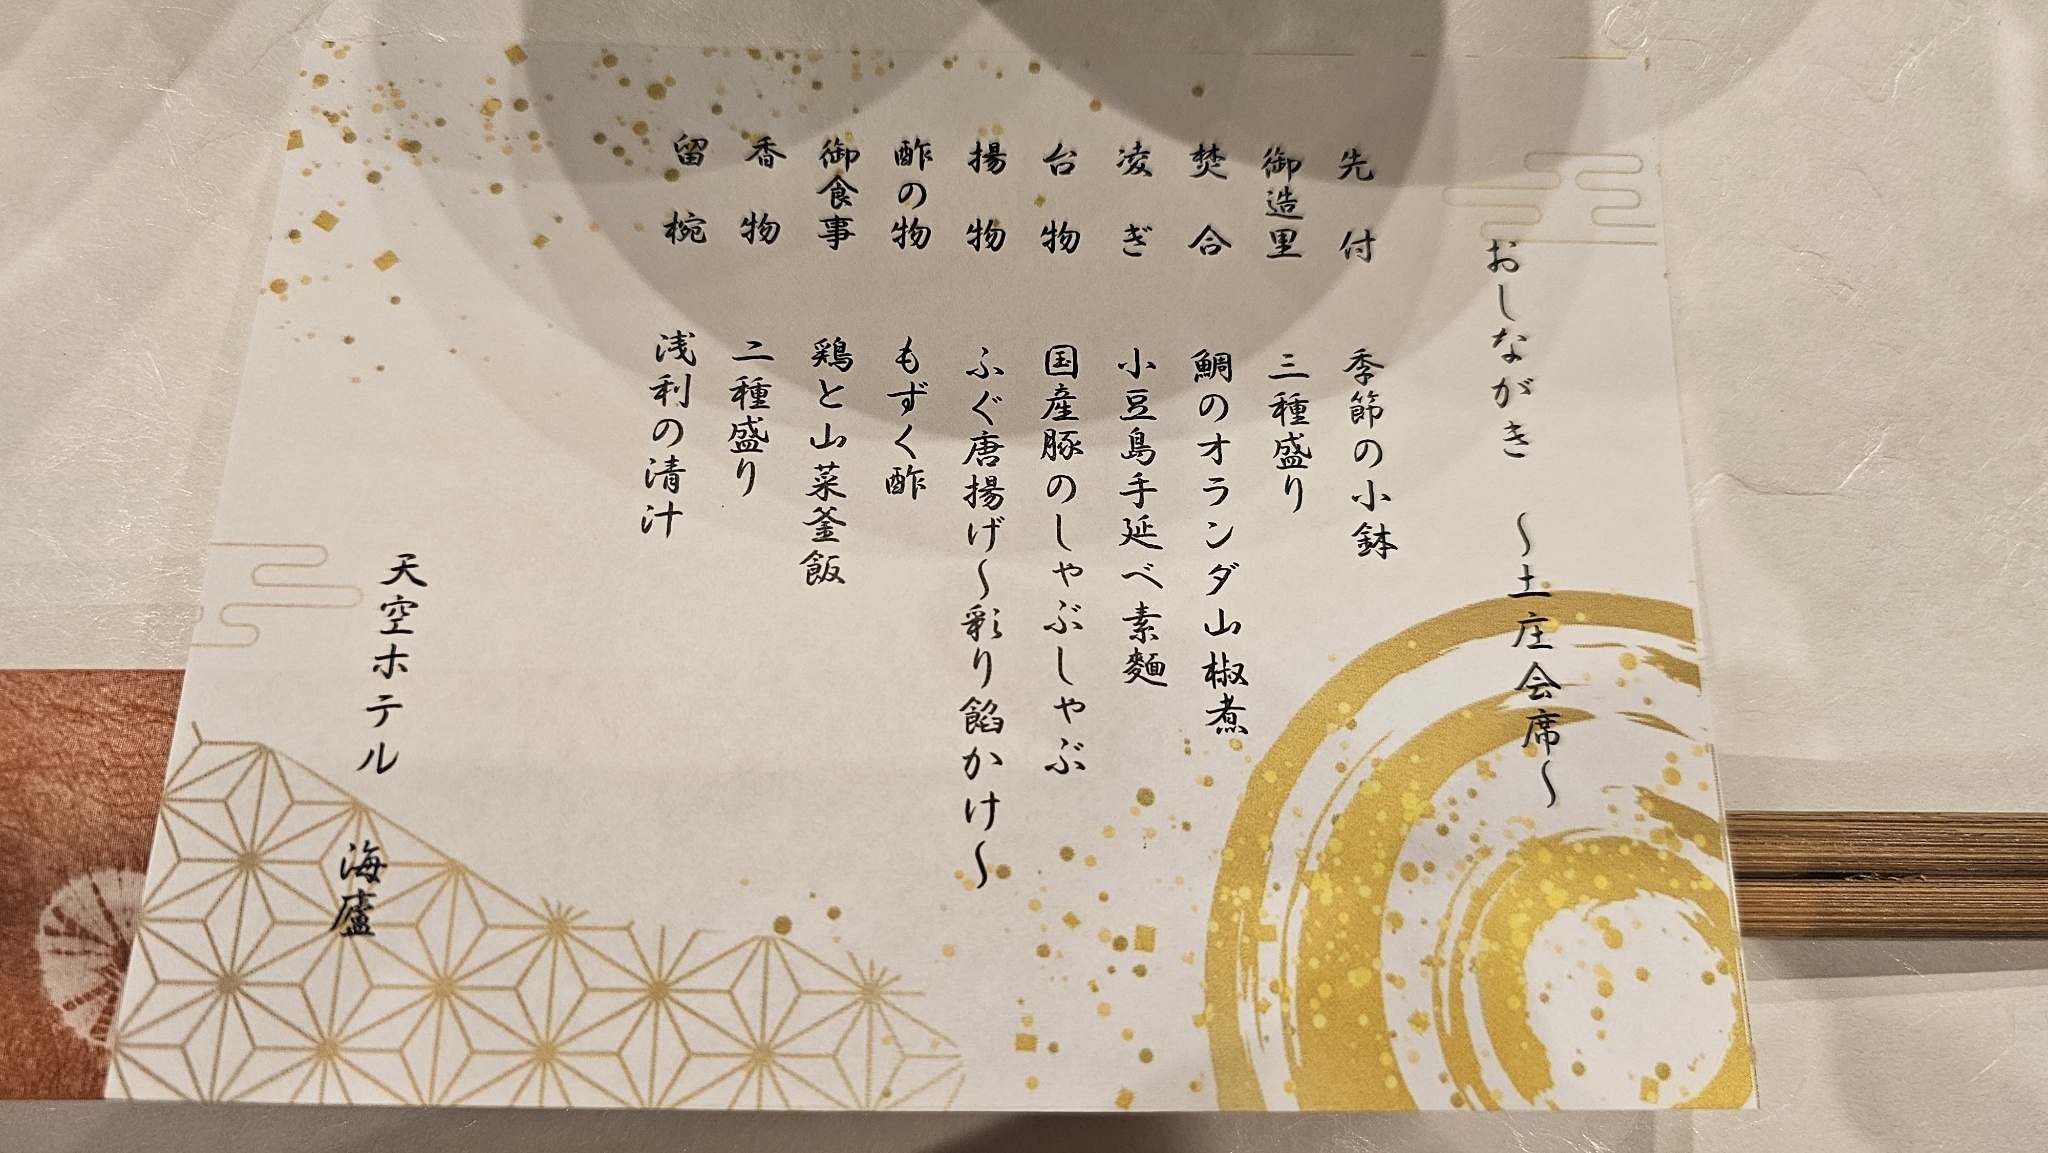 おしながき　～土庄会席～
先付　季節の小鉢
御造里　三種盛り
焚合　鯛のオランダ山椒煮
凌ぎ　小豆島手延べ素麺
台物　国産豚のしゃぶしゃぶ
揚物　ふぐ唐揚げ～彩り餡かけ～
酢の物　もずく酢
御食事　鶏と山菜釜飯
香物　二種盛り
留椀　浅利の清汁
天空ホテル　海廬